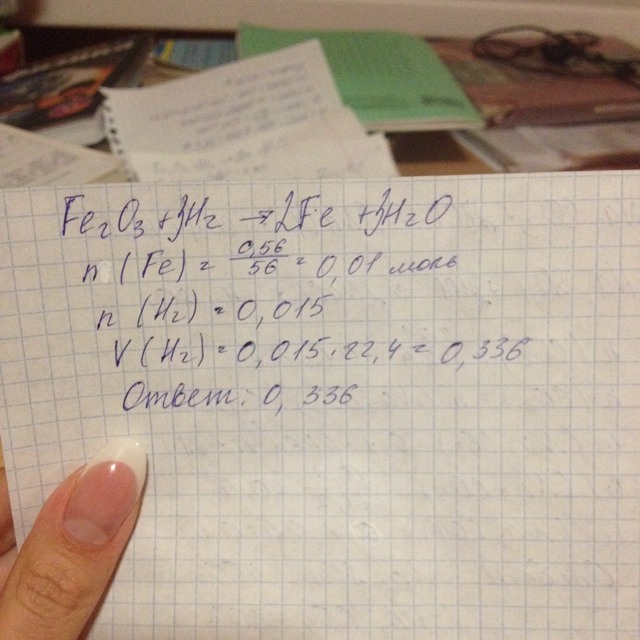 Fe₂O₃ + 3H₂ → 2Fe + 3H₂O
n (Fe) = 0,56/56 = 0,01 моль
n (H₂) = 0,015
V (H₂) = 0,015 · 22,4 = 0,336
Ответ: 0, 336